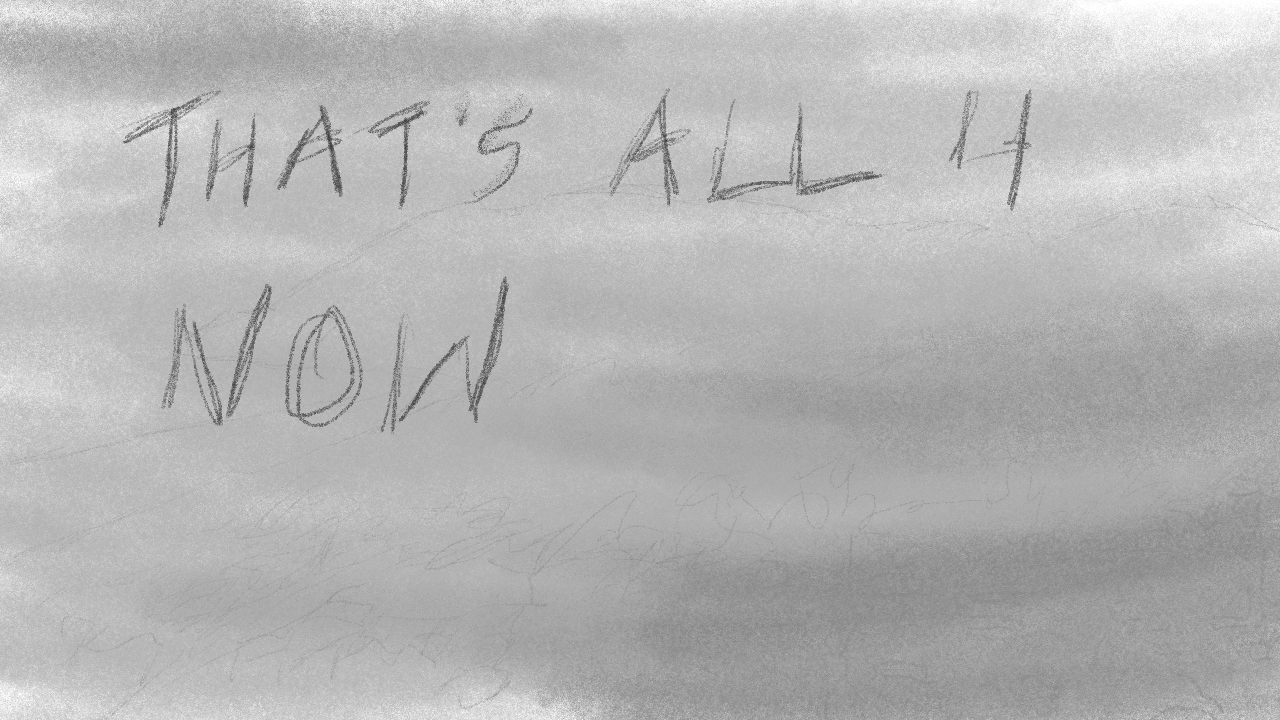 THAT'S ALL 4
NOW